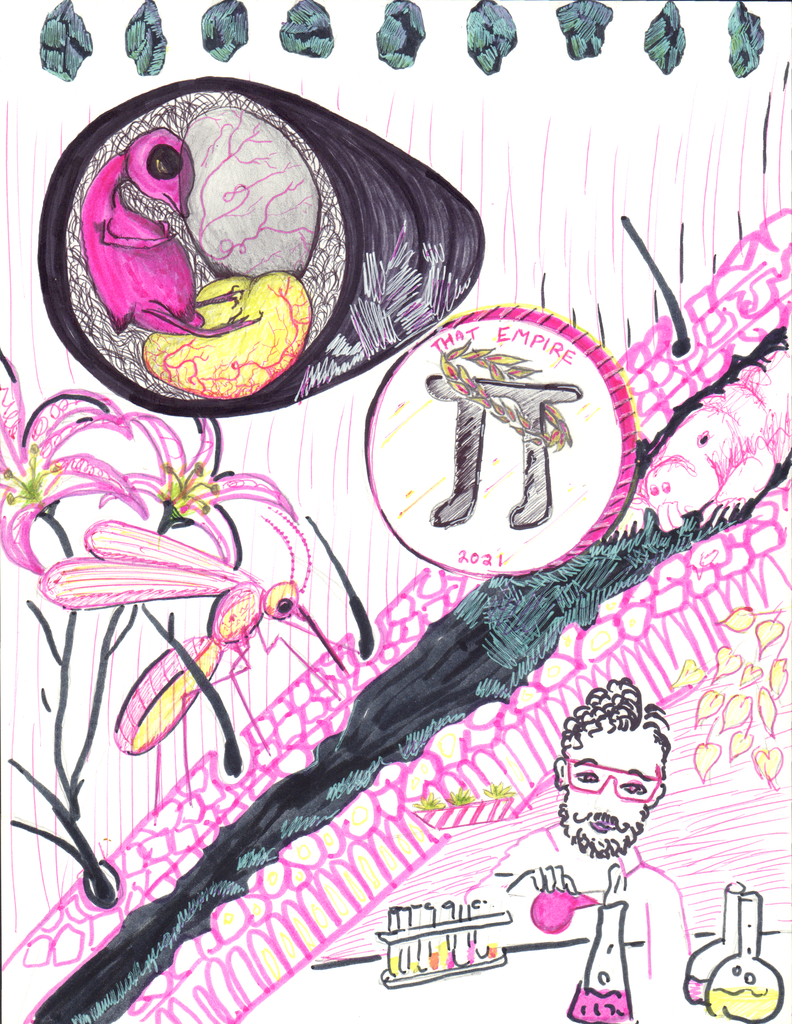 THAT EMPIRE
π
2021